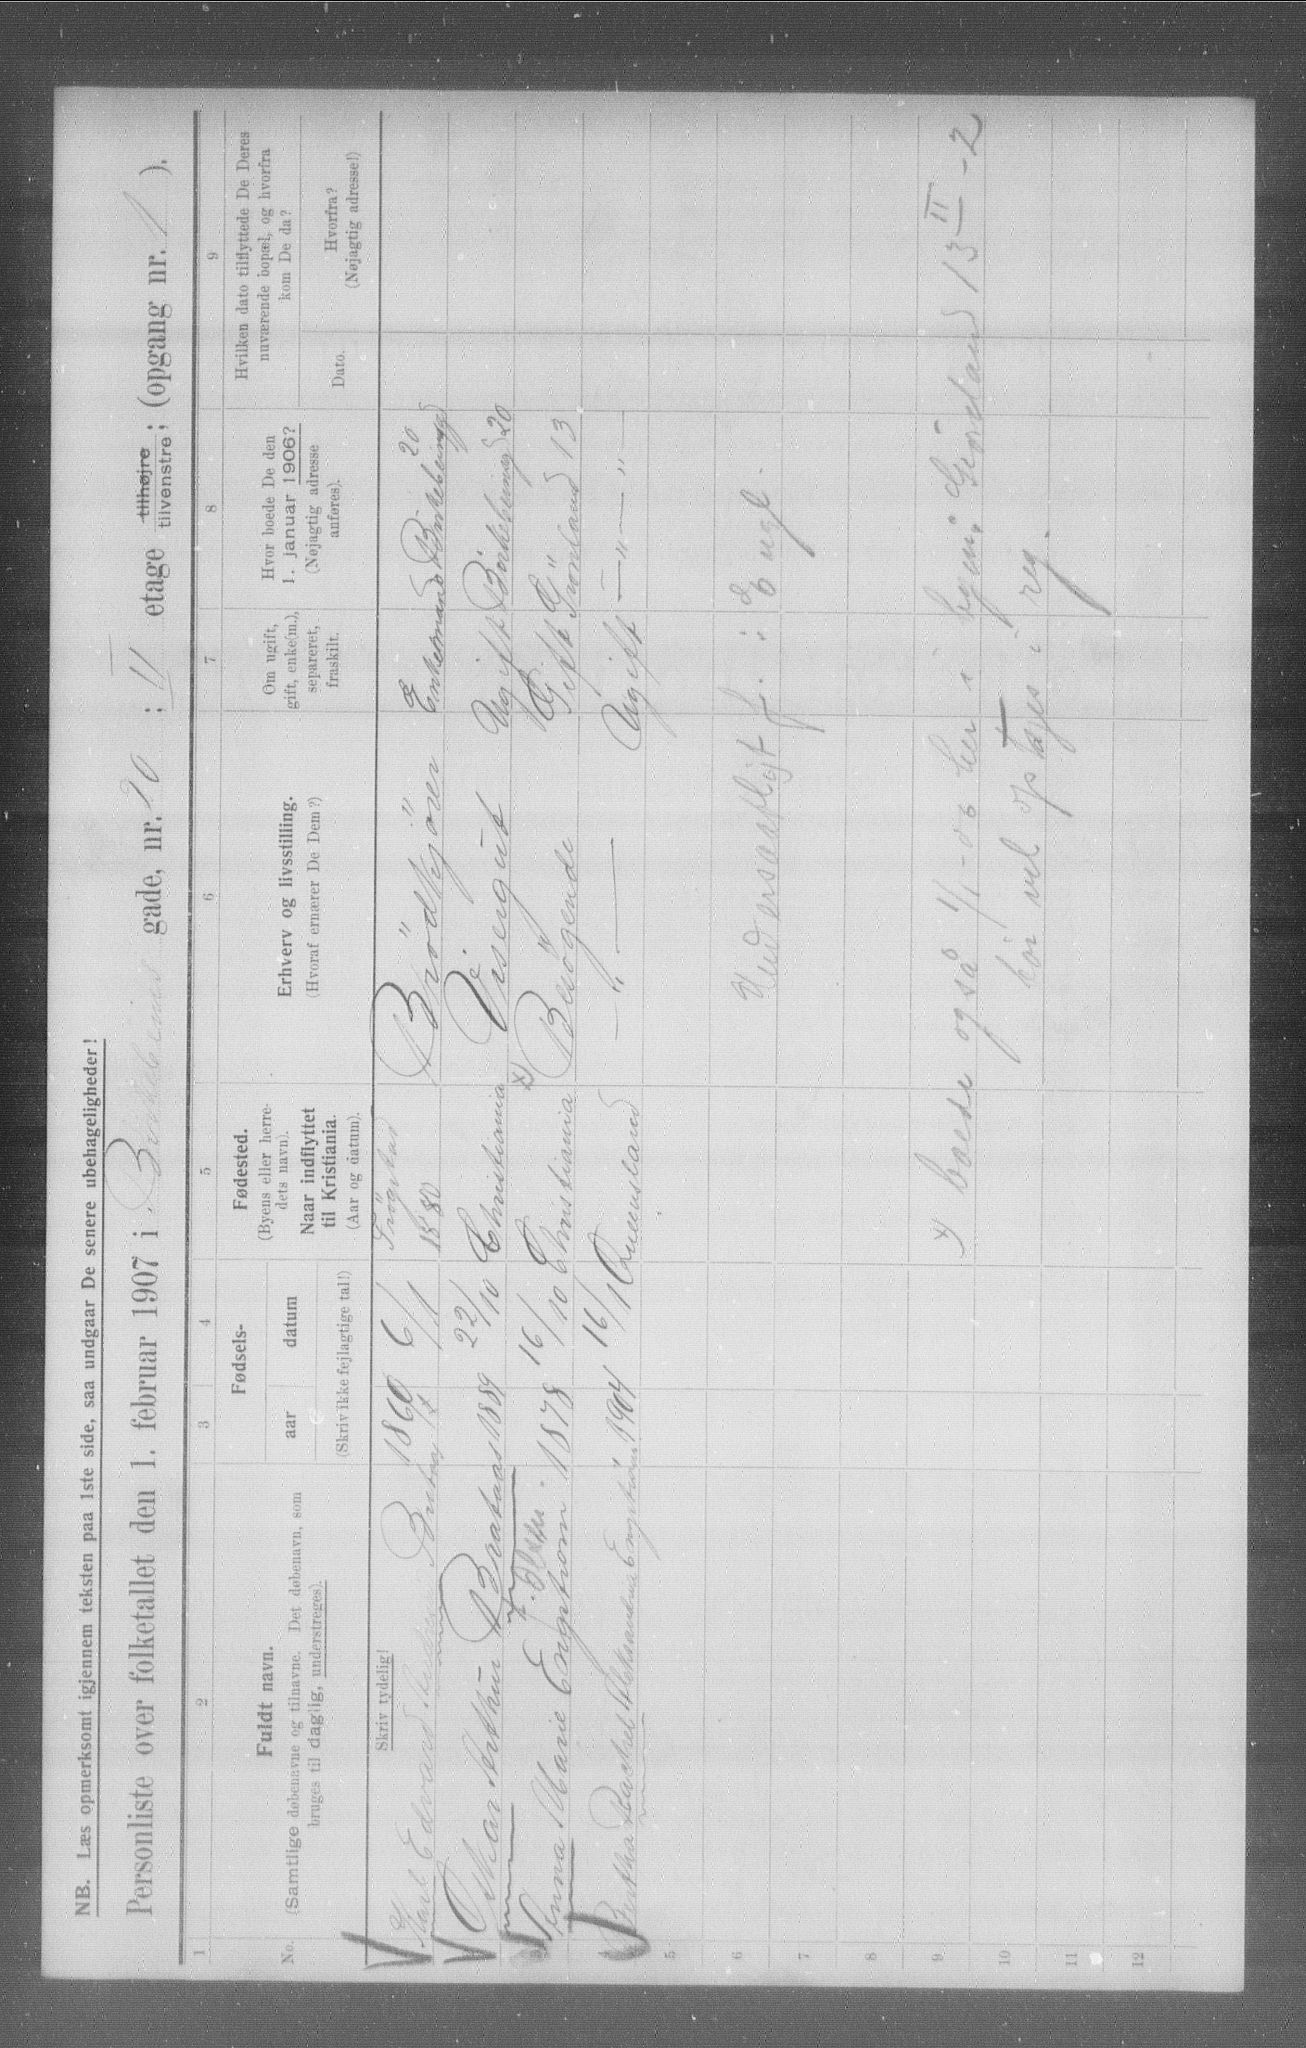 NB. Læs opmerksomt igjennem teksten paa 1ste side, saa undgaar De senere ubehageligheder!
Personliste over folketallet den 1. februar 1907 i gade, nr. 20 ; II etage tilhøjre tilvenstre; (opgang nr. 1 ).
1 2 3 4 5 6 7 8 9
No.
Fuldt navn.
(Samtlige døbenavne og tilnavne. Det døbenavn, som
bruges til daglig, understreges).
Fødsels-
aar datum
(Skriv ikke fejlagtige tal!)
Fødested.
(Byens eller herre-
dets navn).
Naar indflyttet
til Kristiania.
(Aar og datum).
Erhverv og livsstilling.
(Hvoraf ernærer De Dem?)
Om ugift,
gift, enke(m.),
separeret,
fraskilt.
Hvor boede De den
1. januar 1906?
(Nøjagtig adresse
anføres).
Hvilken dato tilflyttede De Deres
nuværende bopæl, og hvorfra
kom De da?
Dato.
Hvorfra?
(Nøjagtig adresse!)
Skriv tydelig!
Karl Edvard 1860 6/1 1880 Enkemand 20
Oskar Arthur Brataas 1889 22/10 Christiania Visergut Ugift Birkebeinerg 20
3 Anna Marie Engstrøm f. Olsen. 1878 16/10 Christiania x) Besøgende Gift Grønland 13
4 Bertha Rachel Aleksandra Engstrøm 1904 16/1 Queensland — " — Ugift — " — " —
5
6 Undersaatligt f. i: Engl.
7
8
9 x) boede også 1/1-06 her i byen: Grønland 13 II - 2
10 bør vel optages i reg.
11
12